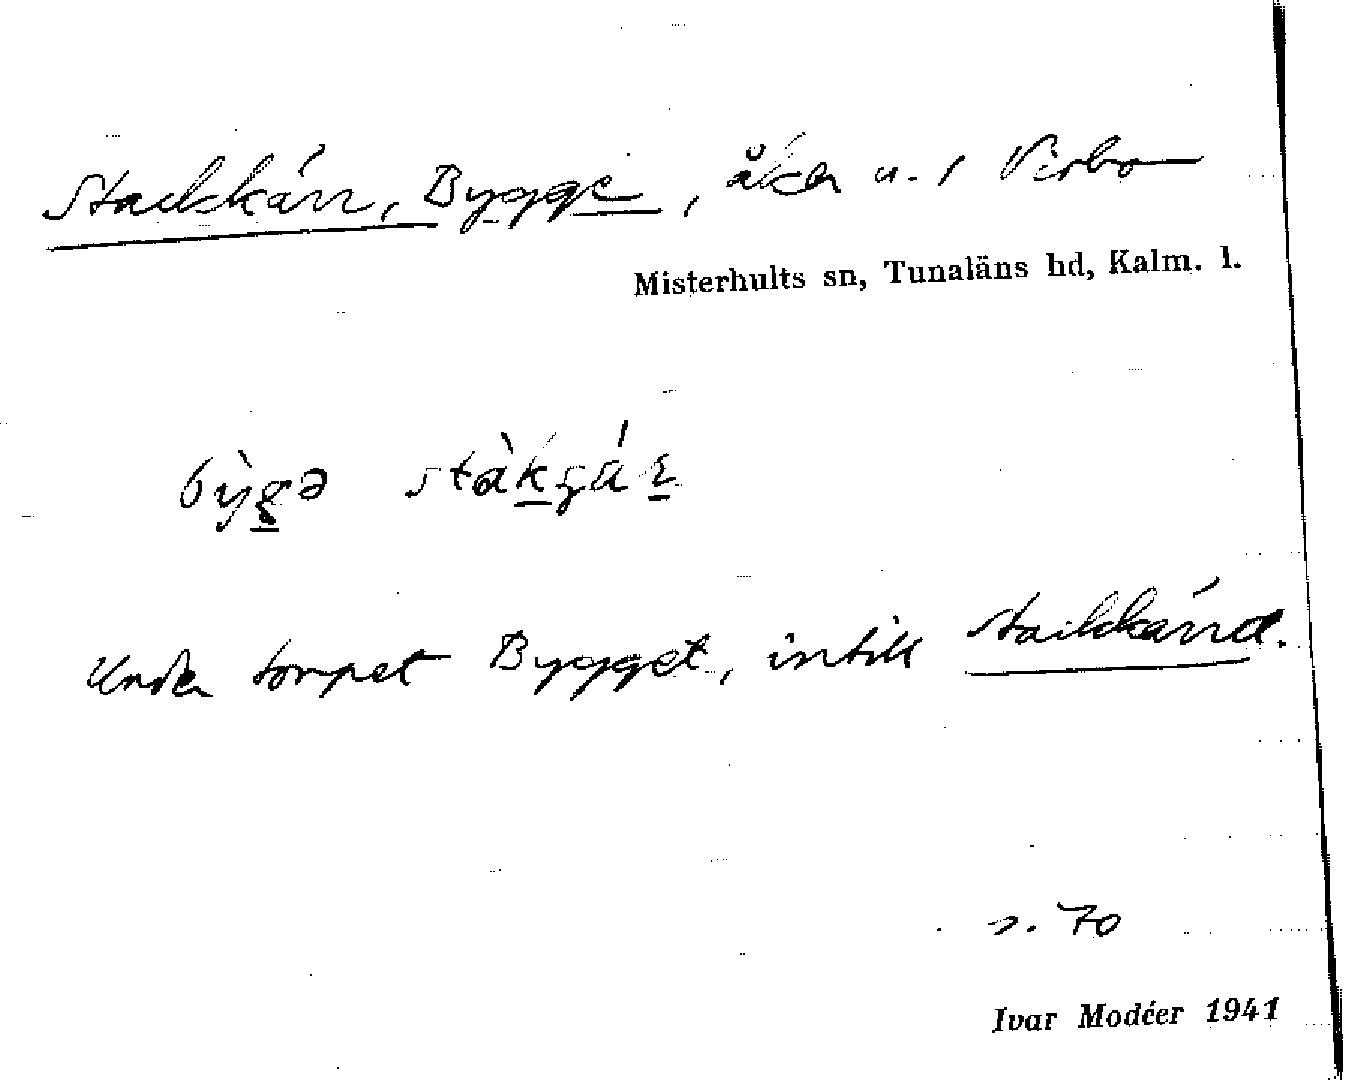 Stackkärr, Bygge, åker u. 1 Virbo
Misterhults sn, Tunaläns hd, Kalm. l.
bỳgə stàkɕä́r
Under torpet Bygget, intill Stackkärret.
s. 70
Ivar Modéer 1941